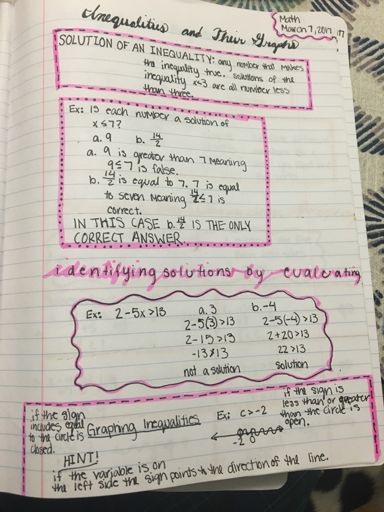 Inequalities and Their Graphs
Math
March 7, 2017
SOLUTION OF AN INEQUALITY: any number that makes
the inequality true. solutions of the
inequality x<3 are all number less
than three.
Ex: is each number a solution of
x ≤ 7?
a. 9 b. 14/2
a. 9 is greater than 7 meaning
9≤7 is false.
b. 14/2 is equal to 7. 7 is equal
to seven meaning 14/2≤7 is
correct.
IN THIS CASE b. 14/2 IS THE ONLY
CORRECT ANSWER.
identifying solutions by evaluating
Ex: 2-5x>13 a. 3 b. -4
2-5(3)>13 2-5(-4)>13
2-15>13 2+20>13
-13≯13 22>13
not a solution solution
if the sign
includes equal
to the circle is
closed.
Graphing Inequalities
Ex: c>-2
-2 0
if the sign is
less than or greater
than the circle is
open.
HINT!
if the variable is on
the left side the sign points to the direction of the line.